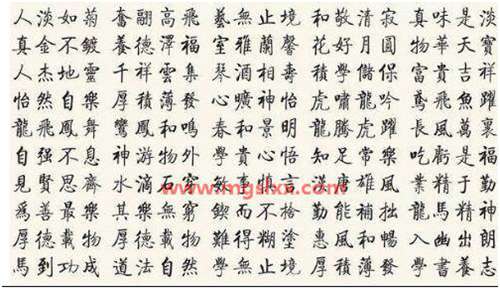 人淡如菊 奮翮高飛 藝無止境 和敬清寂 真味是淡
真金不鍍 養德澤福 室雅蘭馨 花好月圓 物華天寶
人杰地靈 千祥雲集 琴酒相壽 學儲 富貴吉祥
怡然自樂 厚積薄發 心曠神怡 虎嘯龍吟 鳶飛魚躍
龍飛鳳舞 鸞鳳和鳴 春和景明 龍騰虎躍 長風萬裏
自强不息 神游物外 學貴心悟 知足常樂 吃虧是福
見賢思齊 水滴石穿 事慎言 漢唐雄風 業精于勤
www.mgslxx.com
爲善最樂 其樂無窮 鍥而不捨 勤能補拙 龍馬精神
厚德載物 厚德載物 難得糊塗 惠風和暢 入幽出朗
馬到功成 道法自然 學無止境 厚積薄發 學書養志